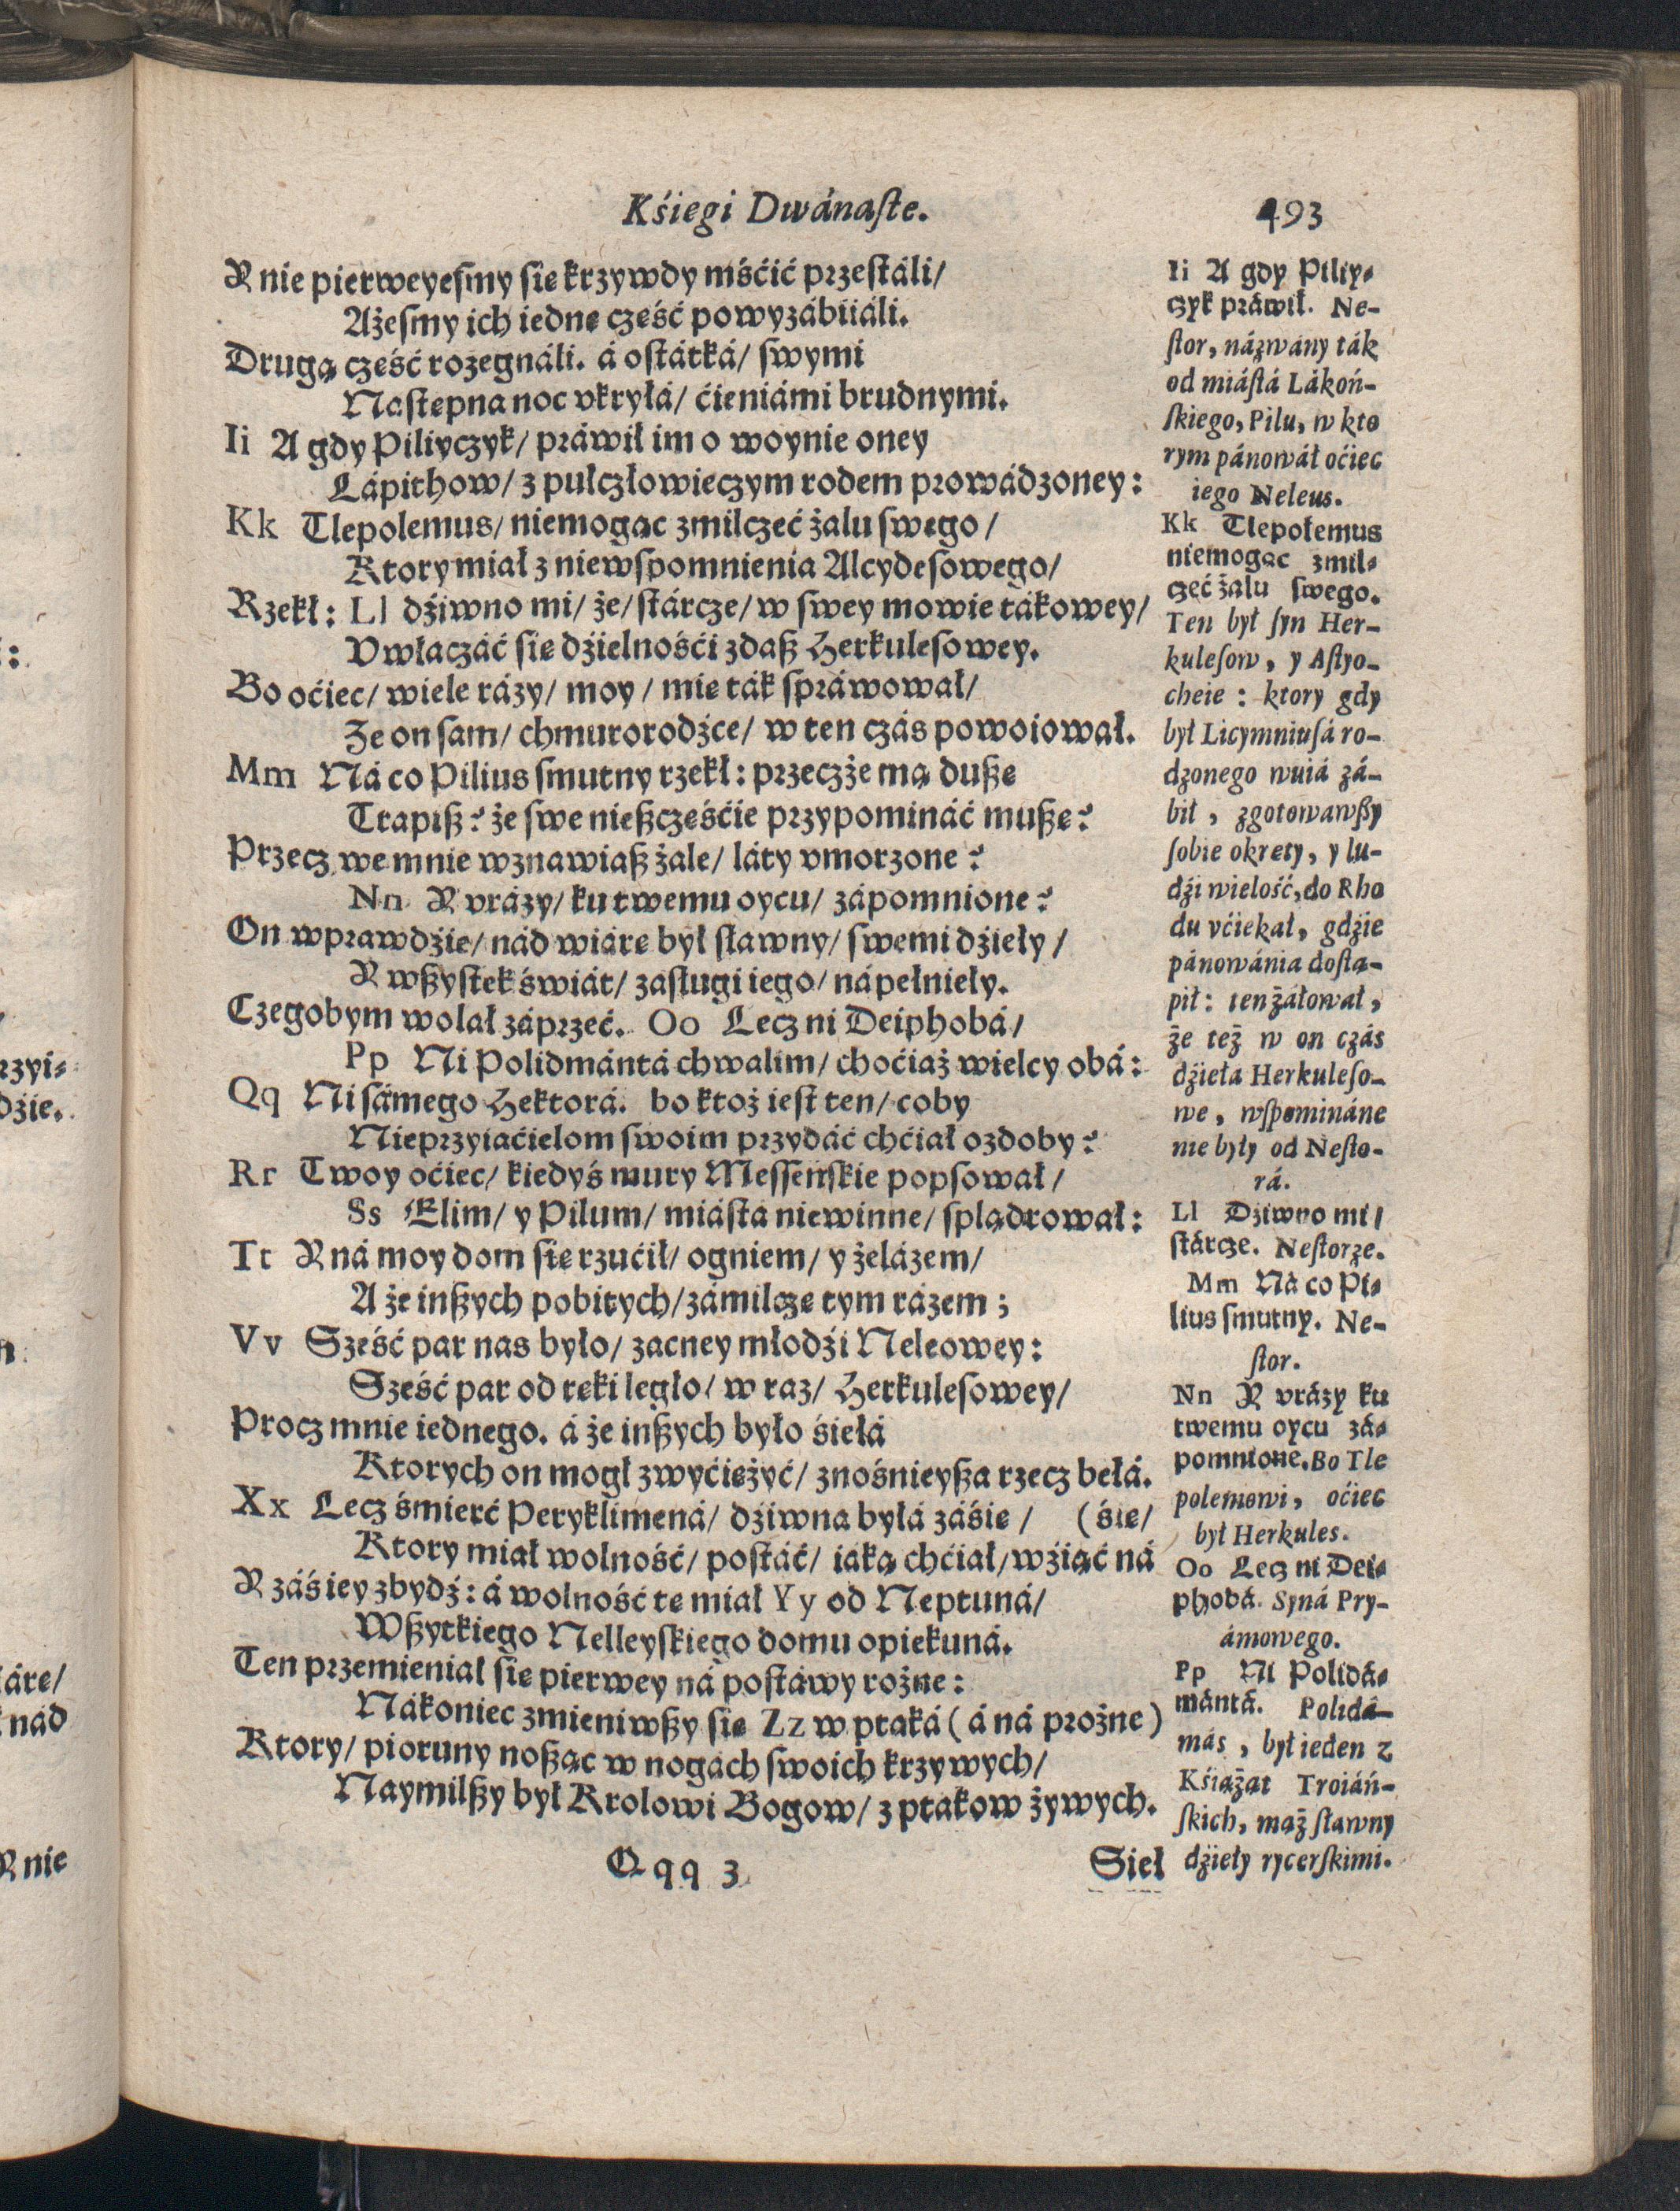 Kśiegi Dwánaſte. 493
Y nie pierweyeſmy ſie krzywdy mśćić przeſtáli/
Ażeſmy ich iednę cześć powyzábiiáli.
Drugą cześć rozegnáli. á oſtátká/ ſwymi
Naſtepna noc vkryłá/ ćieniámi brudnymi.
Ii A gdy Piliyczyk/ práwił im o woynie oney
Lápithow/ z pułczłowieczym rodem prowádzoney:
Kk Tlepolemus/ niemogąc zmilczeć żalu ſwego/
Ktory miał z niewſpomnienia Alcydeſowego/
Rzekł: Ll dźiwno mi/ że/ ſtárcze/ w ſwey mowie tákowey/
Vwłaczáć ſie dźielnośći zdaß Herkuleſowey.
Bo oćiec/ wiele rázy/ moy/ mie ták ſpráwował/
Że on ſam/ chmurorodźce/ w ten czás powoiował.
Mm Ná co Pilius ſmutny rzekł: przeczże mą dußę
Trapiß? że ſwe nießczęśćie przypomináć mußę?
Przecz we mnie wznawiaß żale/ láty vmorzone?
Nn Y vrázy/ ku twemu oycu/ zápomnione?
On wprawdźie/ nád wiáre był ſławny/ ſwemi dźieły/
Y wßyſtek świát/ zaſługi iego/ nápełnieły.
Czegobym wolał záprzeć. Oo Lecz ni Deiphobá/
Pp Ni Polidmántá chwalim/ choćiaż wielcy obá:
Qq Ni ſámego Hektorá. bo ktoż ieſt ten/ coby
Nieprzyiaćielom ſwoim przydáć chćiał ozdoby?
Rr Twoy oćiec/ kiedyś mury Meſſeńſkie popſował/
Ss Elim/ y Pilum/ miáſtá niewinne/ ſplądrował:
Tt Y ná moy dom ſie rzućił/ ogniem/ y żelázem/
A że inßych pobitych/ zámilczę tym rázem;
Vv Sześć par nas było/ zacney młodźi Neleowey:
Sześć par od ręki legło/ w raz/ Herkuleſowey/
Procz mnie iednego. á że inßych było śiełá
Ktorych on mogł zwyćiężyć/ znośnieyßa rzecz bełá.
Xx Lecz śmierć Peryklimená/ dźiwna byłá záśie/ (śie/
Ktory miał wolność/ poſtáć/ iáką chćiał/ wźiąć ná
Y záś iey zbydź: á wolność tę miał Yy od Neptuná/
Wßytkiego Nelleyſkiego domu opiekuná.
Ten przemieniał ſie pierwey ná poſtáwy rożne:
Nákoniec zmieniwßy ſie Zz w ptaká (á ná prożne)
Ktory/ pioruny noßąc w nogách ſwoich krzywych/
Naymilßy był Krolowi Bogow/ z ptakow żywych.
Qqq 3 Sieł
Ii A gdy Piliy-
czyk práwił. Ne-
ſtor, názwány ták
od miáſtá Lákoń-
ſkiego, Pilu, w kto
rym pánowáł oćiec
iego Neleus.
Kk Tlepolemus
niemogąc zmil-
czeć żalu ſwego.
Ten był ſyn Her-
kuleſow, y Aſtyo-
cheie: ktory gdy
był Licymniuſá ro-
dzonego wuiá zá-
bił, zgotowawßy
ſobie okrety, y lu-
dźi wielość, do Rho
du vćiekał, gdźie
pánowánia doſtą-
pił: ten żáłował,
że też w on czás
dźieła Herkuleſo-
we, wſpomináne
nie były od Neſto-
rá.
Ll Dźiwno mi/
ſtárcze. Neſtorze.
Mm Ná co Pi-
lius ſmutny. Ne-
ſtor.
Nn Y vrázy ku
twemu oycu zá-
pomnione. Bo Tle
polemowi, oćiec
był Herkules.
Oo Lecz ni Dei-
phobá. Syná Pry-
ámowego.
Pp Ni Polidá-
mántá. Polidá-
más, był ieden z
Kśiążąt Troiáń-
ſkich, mąż ſławny
dźieły rycerſkimi.
:
rzyi-
dźie.
iáre/
nád
Y nie